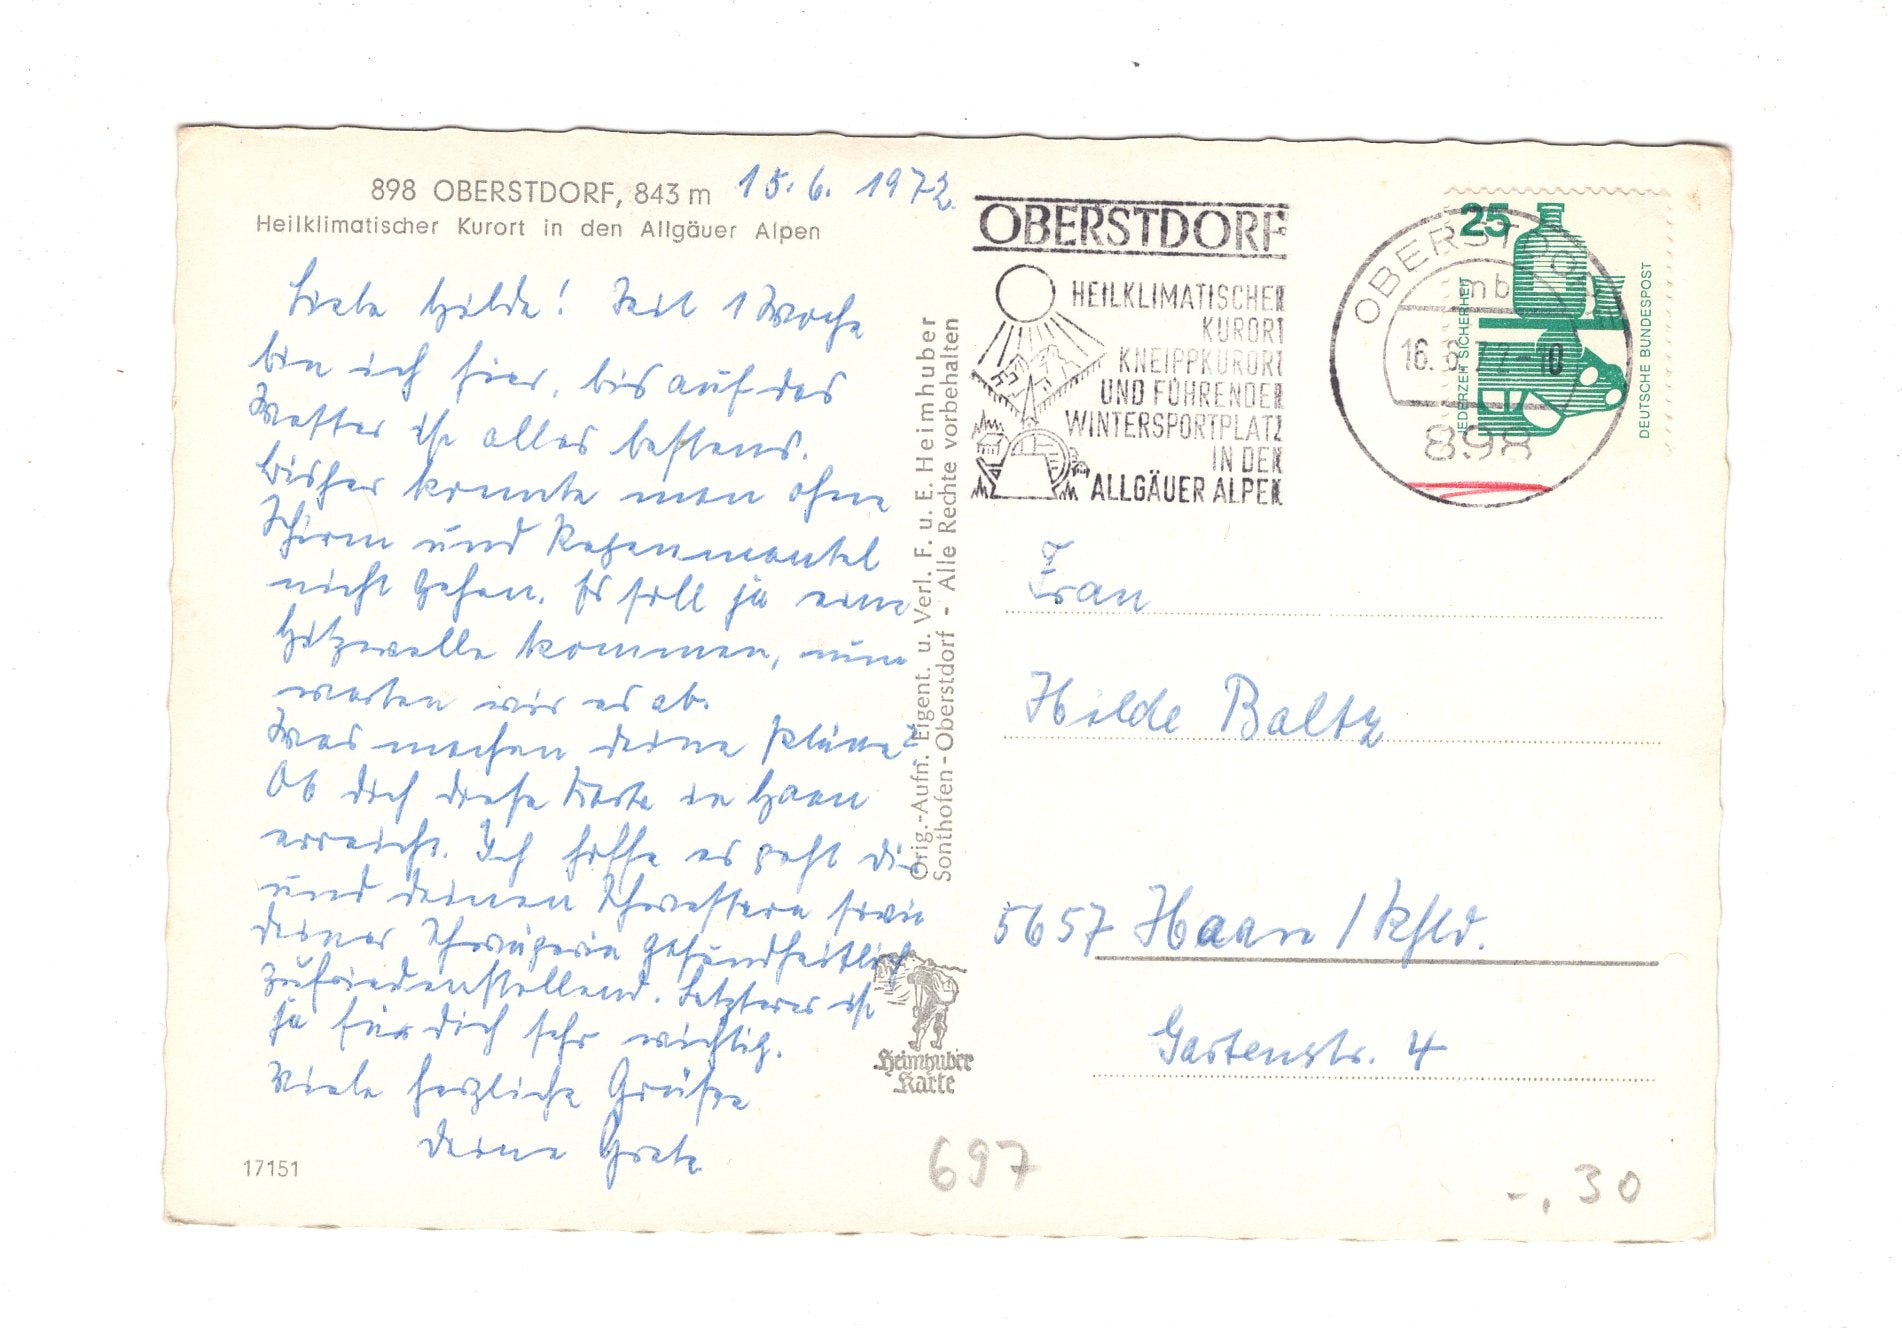 898 OBERSTDORF, 843 m
15.6.1972
Heilklimatischer Kurort in den Allgäuer Alpen
Liebe Hilde! Seit 1 Woche
bin ich hier, bis auf das
Wetter ist alles bestens.
Bisher konnte man ohne
Schirm und Regenmantel
nicht gehen. Es soll ja eine
Hitzewelle kommen, nun
warten wir es ab.
Was machen deine Pläne?
Ob dich diese Karte in Haan
erreicht. Ich hoffe es geht dir
und deinen Schwestern sowie
deiner Schwägerin gesundheitlich
zufriedenstellend. Letzteres ist
ja für dich sehr wichtig.
Viele herzliche Grüße
deine Grete
17151
Orig.-Aufn. Eigent. u. Verl. F. u. E. Heimhuber
Sonthofen-Oberstdorf - Alle Rechte vorbehalten
Heimhuber
Karte
697
OBERSTDORF
HEILKLIMATISCHER
KURORT
KNEIPPKURORT
UND FÜHRENDER
WINTERSPORTPLATZ
IN DEN
ALLGÄUER ALPEN
OBERSTDORF
mb
16.6.72-10
898
25
JEDERZEIT SICHERHEIT
DEUTSCHE BUNDESPOST
Frau
Hilde Baltz
5657 Haan / Rhld.
Gartenstr. 4
-,30